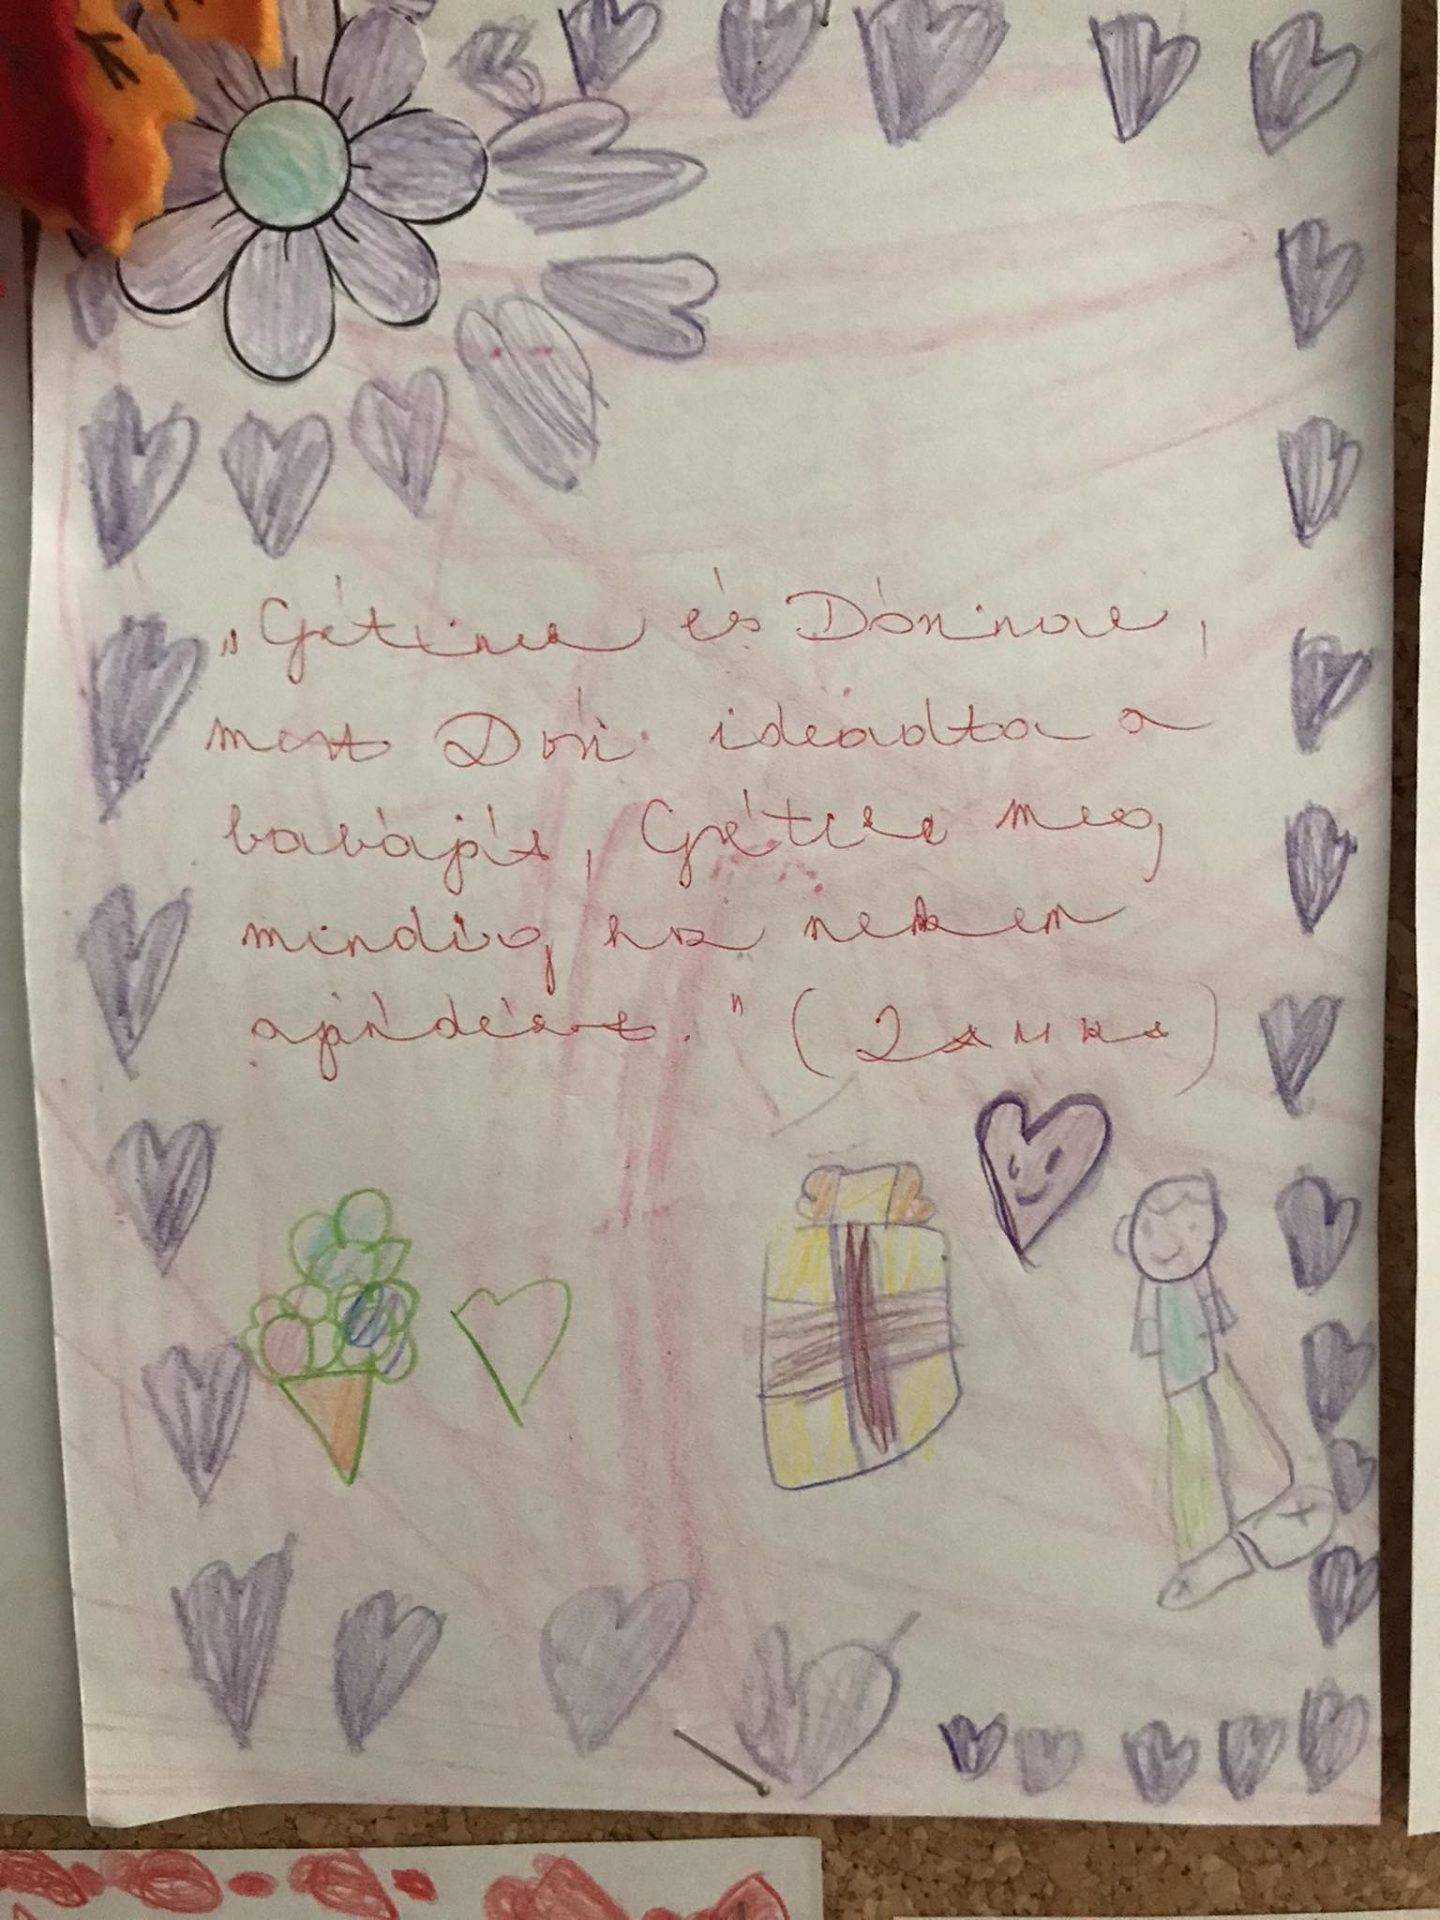 „Grétinek és Dórinak,
mert Dóri ideadta a
babáját, Grétike meg
mindig hoz nekem
ajándékot." (Zanka)